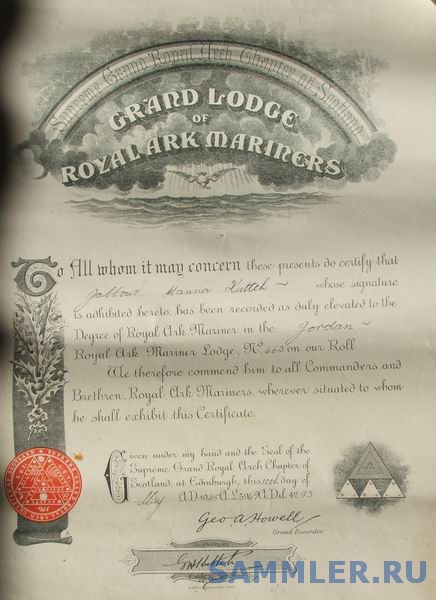 Supreme Grand Royal Arch Chapter of Scotland
GRAND LODGE
OF
ROYAL ARK MARINERS
To All whom it may concern these presents do certify that
Jabbour Hanna Kutteh whose signature
is adhibited hereto, has been recorded as duly elevated to the
Degree of Royal Ark Mariner in the Jordan
Royal Ark Mariner Lodge, No. 663 on our Roll.
We therefore commend him to all Commanders and
Brethren, Royal Ark Mariners, wherever situated to whom
he shall exhibit this Certificate.
Given under my hand and the Seal of the
Supreme Grand Royal Arch Chapter of
Scotland, at Edinburgh, this 10th day of
May A.D. 1945 A.L. 5949 A.Dil. 4293
Geo. A. Howell
Grand Recorder
SIGNATURE
SAMMLER.RU